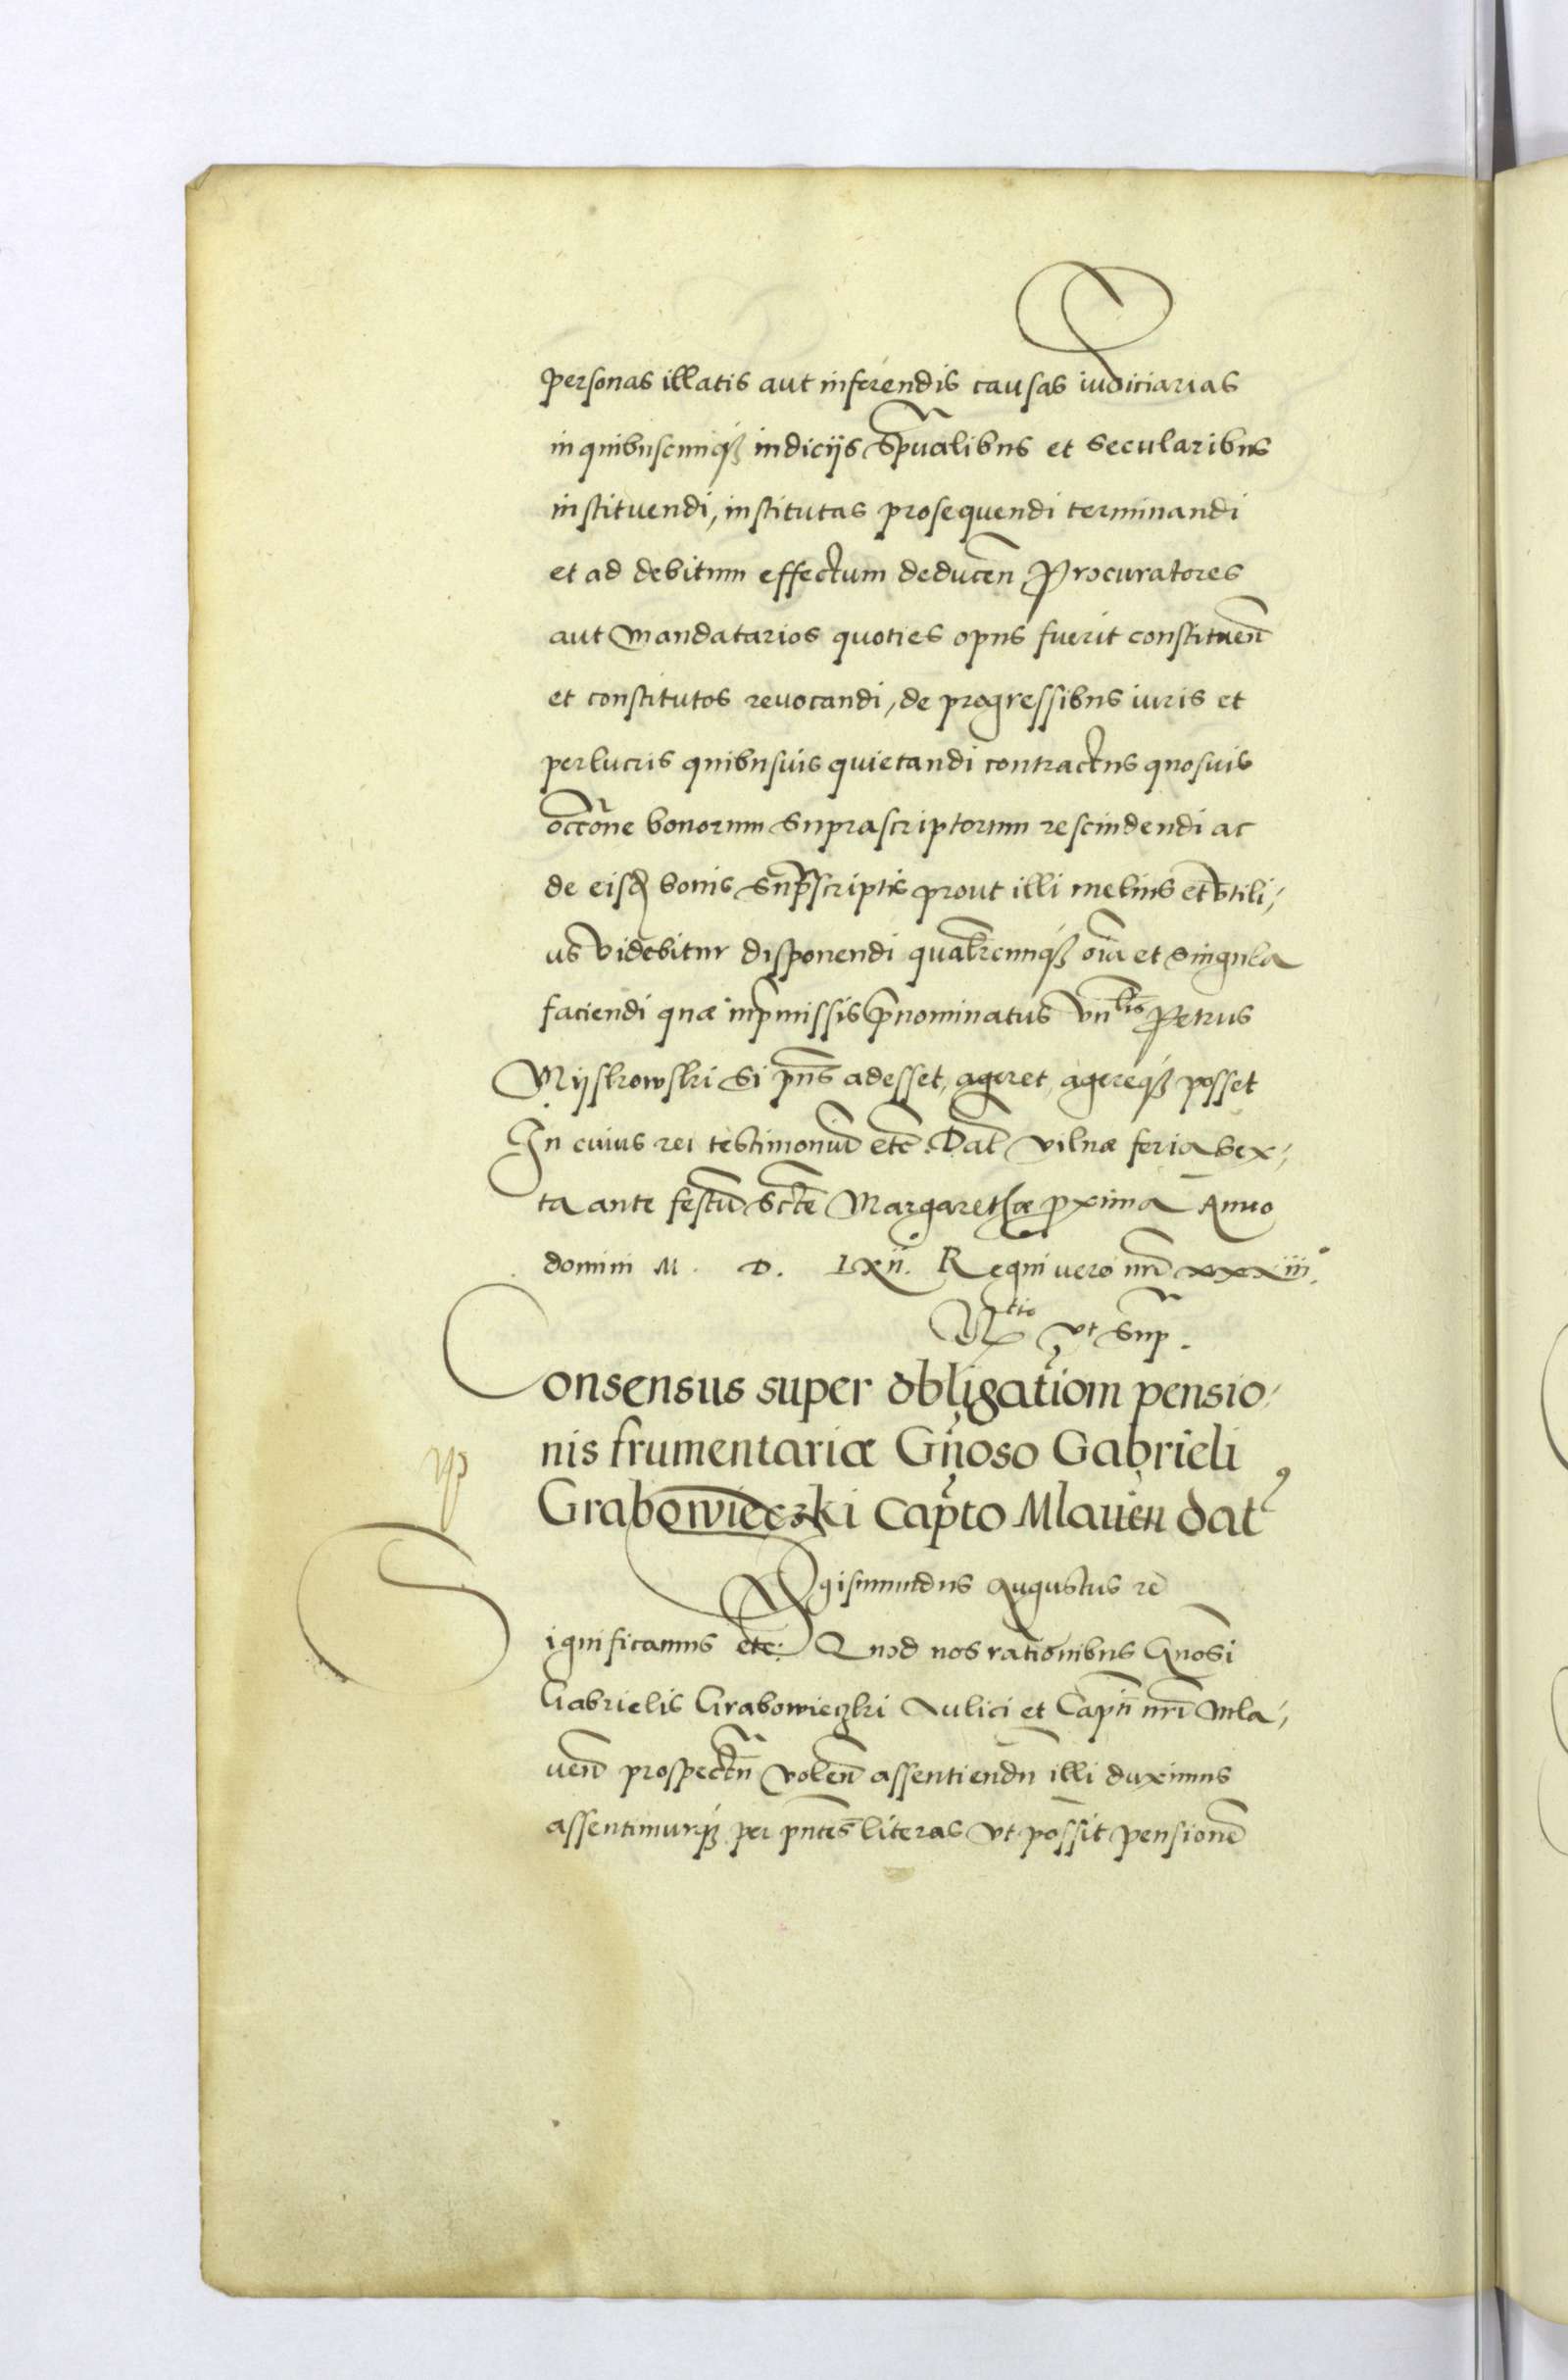 personas illatis aut inferendis causas iudiciarias
in quibuscunq₃ iudicijs Sp̄ualibus et secularibus
instituendi, institutas prosequendi terminandi
et ad debitum effectum deducen̄ Procuratores
aut Mandatarios quoties opus fuerit constituen̄
et constitutos reuocandi, de progressibus iuris et
perlucris quibusuis quietandi contractus quosuis
occōne bonorum suprascriptorum rescindendi ac
de eisd bonis sup̄scriptis prout illi melius et vtili,
us videbitur disponendi qualr̄cunq₃ oīa et singula
faciendi quæ in p̄missis p̄nominatus Vn̄lis Petrus
Mijskowski si pn̄s adesset, ageret, agereq₃ posset
In cuius rei testimoniū etc̄. Dat̄ Vilnæ feria sex,
ta ante festū Sctē Margarethæ proxima Anno
domini M. D. Lxii. Regni vero nrī xxxiii°.
Rtio vt sup̄.
Consensus super obligatiom pensio,
nis frumentariæ Gn̄oso Gabrieli
Grabowieczki Capto Mlauien dat
Sigismundus Augustus re
Significamus etc: Quod nos rationibus Gnosi
Gabrielis Grabowieczki Aulici et Captī nrī Mla,
uen̄ prospectū volen̄ assentiendū illi duximus
assentimurq₃ per pn̄tes literas vt possit pensionē